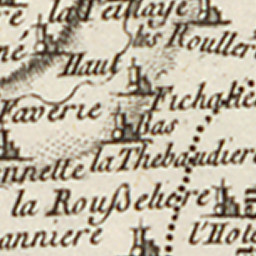 la Teillaye
les Rouller
né
Haut
Faverie
Fichatiè
Bas
nnette la Thebaudiere
la Rousseliere
anniere
l'Hote